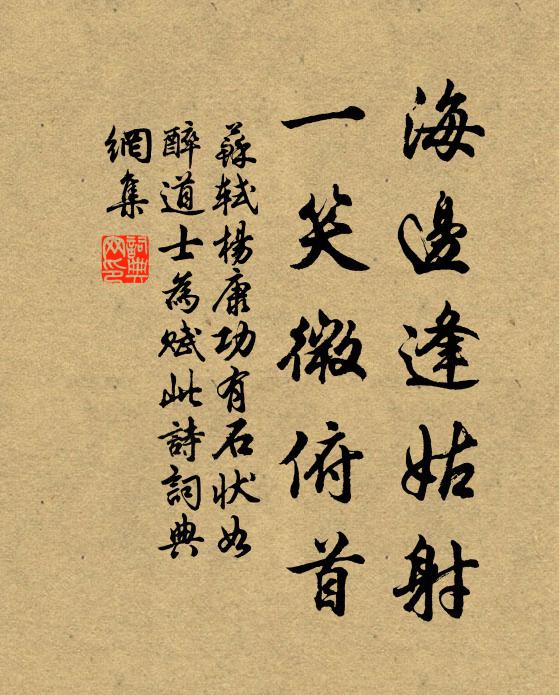 海邊逢姑射
一笑微俯首
蘇軾楊康功有石狀如
醉道士為賦此詩詞典
網集
詞典
网印